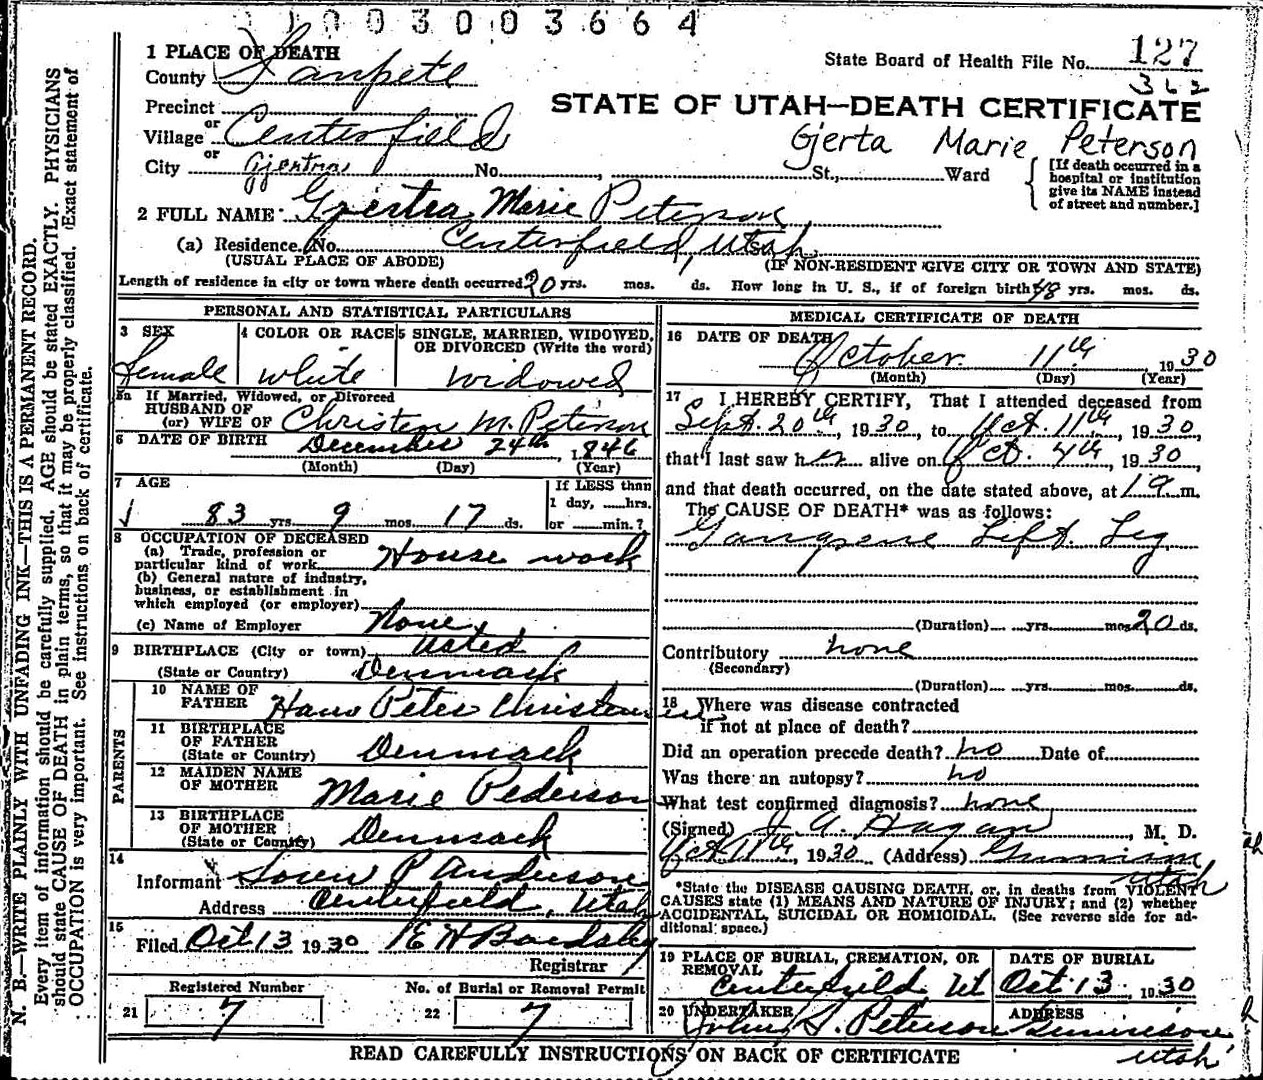 0003003664
1 PLACE OF DEATH
State Board of Health File No. 127
362
County Sanpete
STATE OF UTAH—DEATH CERTIFICATE
Precinct
or
Village Centerfield
Gjerta Marie Peterson
or
City Gjertra No. , St., Ward
[If death occurred in a hospital or institution give its NAME instead of street and number.]
2 FULL NAME Gjertra Marie Peterson
(a) Residence. No. Centerfield, Utah,
(USUAL PLACE OF ABODE) (IF NON-RESIDENT GIVE CITY OR TOWN AND STATE)
Length of residence in city or town where death occurred 20 yrs. mos. ds. How long in U. S., if of foreign birth 48 yrs. mos. ds.
PERSONAL AND STATISTICAL PARTICULARS
3 SEX 4 COLOR OR RACE 5 SINGLE, MARRIED, WIDOWED, OR DIVORCED (Write the word)
Female white widowed
5a If Married, Widowed, or Divorced
HUSBAND OF
(or) WIFE OF Christen M. Peterson
6 DATE OF BIRTH December 24th, 1846
(Month) (Day) (Year)
7 AGE
If LESS than
1 day, ....hrs.
83 yrs. 9 mos. 17 ds. or ....min.?
8 OCCUPATION OF DECEASED
(a) Trade, profession or
particular kind of work House work
(b) General nature of industry,
business, or establishment in
which employed (or employer)
(c) Name of Employer None
9 BIRTHPLACE (City or town) Usted
(State or Country) Denmark
PARENTS
10 NAME OF FATHER Hans Peter Christensen
11 BIRTHPLACE OF FATHER
(State or Country) Denmark
12 MAIDEN NAME OF MOTHER Marie Pederson
13 BIRTHPLACE OF MOTHER
(State or Country) Denmark
14
Informant Soren P Anderson
Address Centerfield, Utah
15
Filed Oct 13 1930 E H Bardsley
Registrar
Registered Number No. of Burial or Removal Permit
21 7 22 7
MEDICAL CERTIFICATE OF DEATH
16 DATE OF DEATH
October 11th 1930
(Month) (Day) (Year)
17 I HEREBY CERTIFY, That I attended deceased from
Sept. 20th, 1930, to Oct. 11th, 1930,
that I last saw her alive on Oct. 4th, 1930,
and that death occurred, on the date stated above, at 1 a m.
The CAUSE OF DEATH* was as follows:
Gangrene Left Leg
(Duration) yrs. mos. 20 ds.
Contributory none
(Secondary)
(Duration) yrs. mos. ds.
18 Where was disease contracted
if not at place of death?
Did an operation precede death? no Date of
Was there an autopsy? no
What test confirmed diagnosis? none
(Signed) J. A. Hagan, M. D.
Oct 11th, 1930 (Address) Gunnison
Utah
*State the DISEASE CAUSING DEATH, or, in deaths from VIOLENT
CAUSES state (1) MEANS AND NATURE OF INJURY; and (2) whether
ACCIDENTAL, SUICIDAL OR HOMICIDAL. (See reverse side for ad-
ditional space.)
19 PLACE OF BURIAL, CREMATION, OR REMOVAL DATE OF BURIAL
Centerfield Ut Oct 13 1930
20 UNDERTAKER ADDRESS
John S. Peterson Gunnison
Utah
READ CAREFULLY INSTRUCTIONS ON BACK OF CERTIFICATE
N. B.—WRITE PLAINLY WITH UNFADING INK—THIS IS A PERMANENT RECORD.
Every item of information should be carefully supplied. AGE should be stated EXACTLY. PHYSICIANS
should state CAUSE OF DEATH in plain terms, so that it may be properly classified. Exact statement of
OCCUPATION is very important. See instructions on back of certificate.